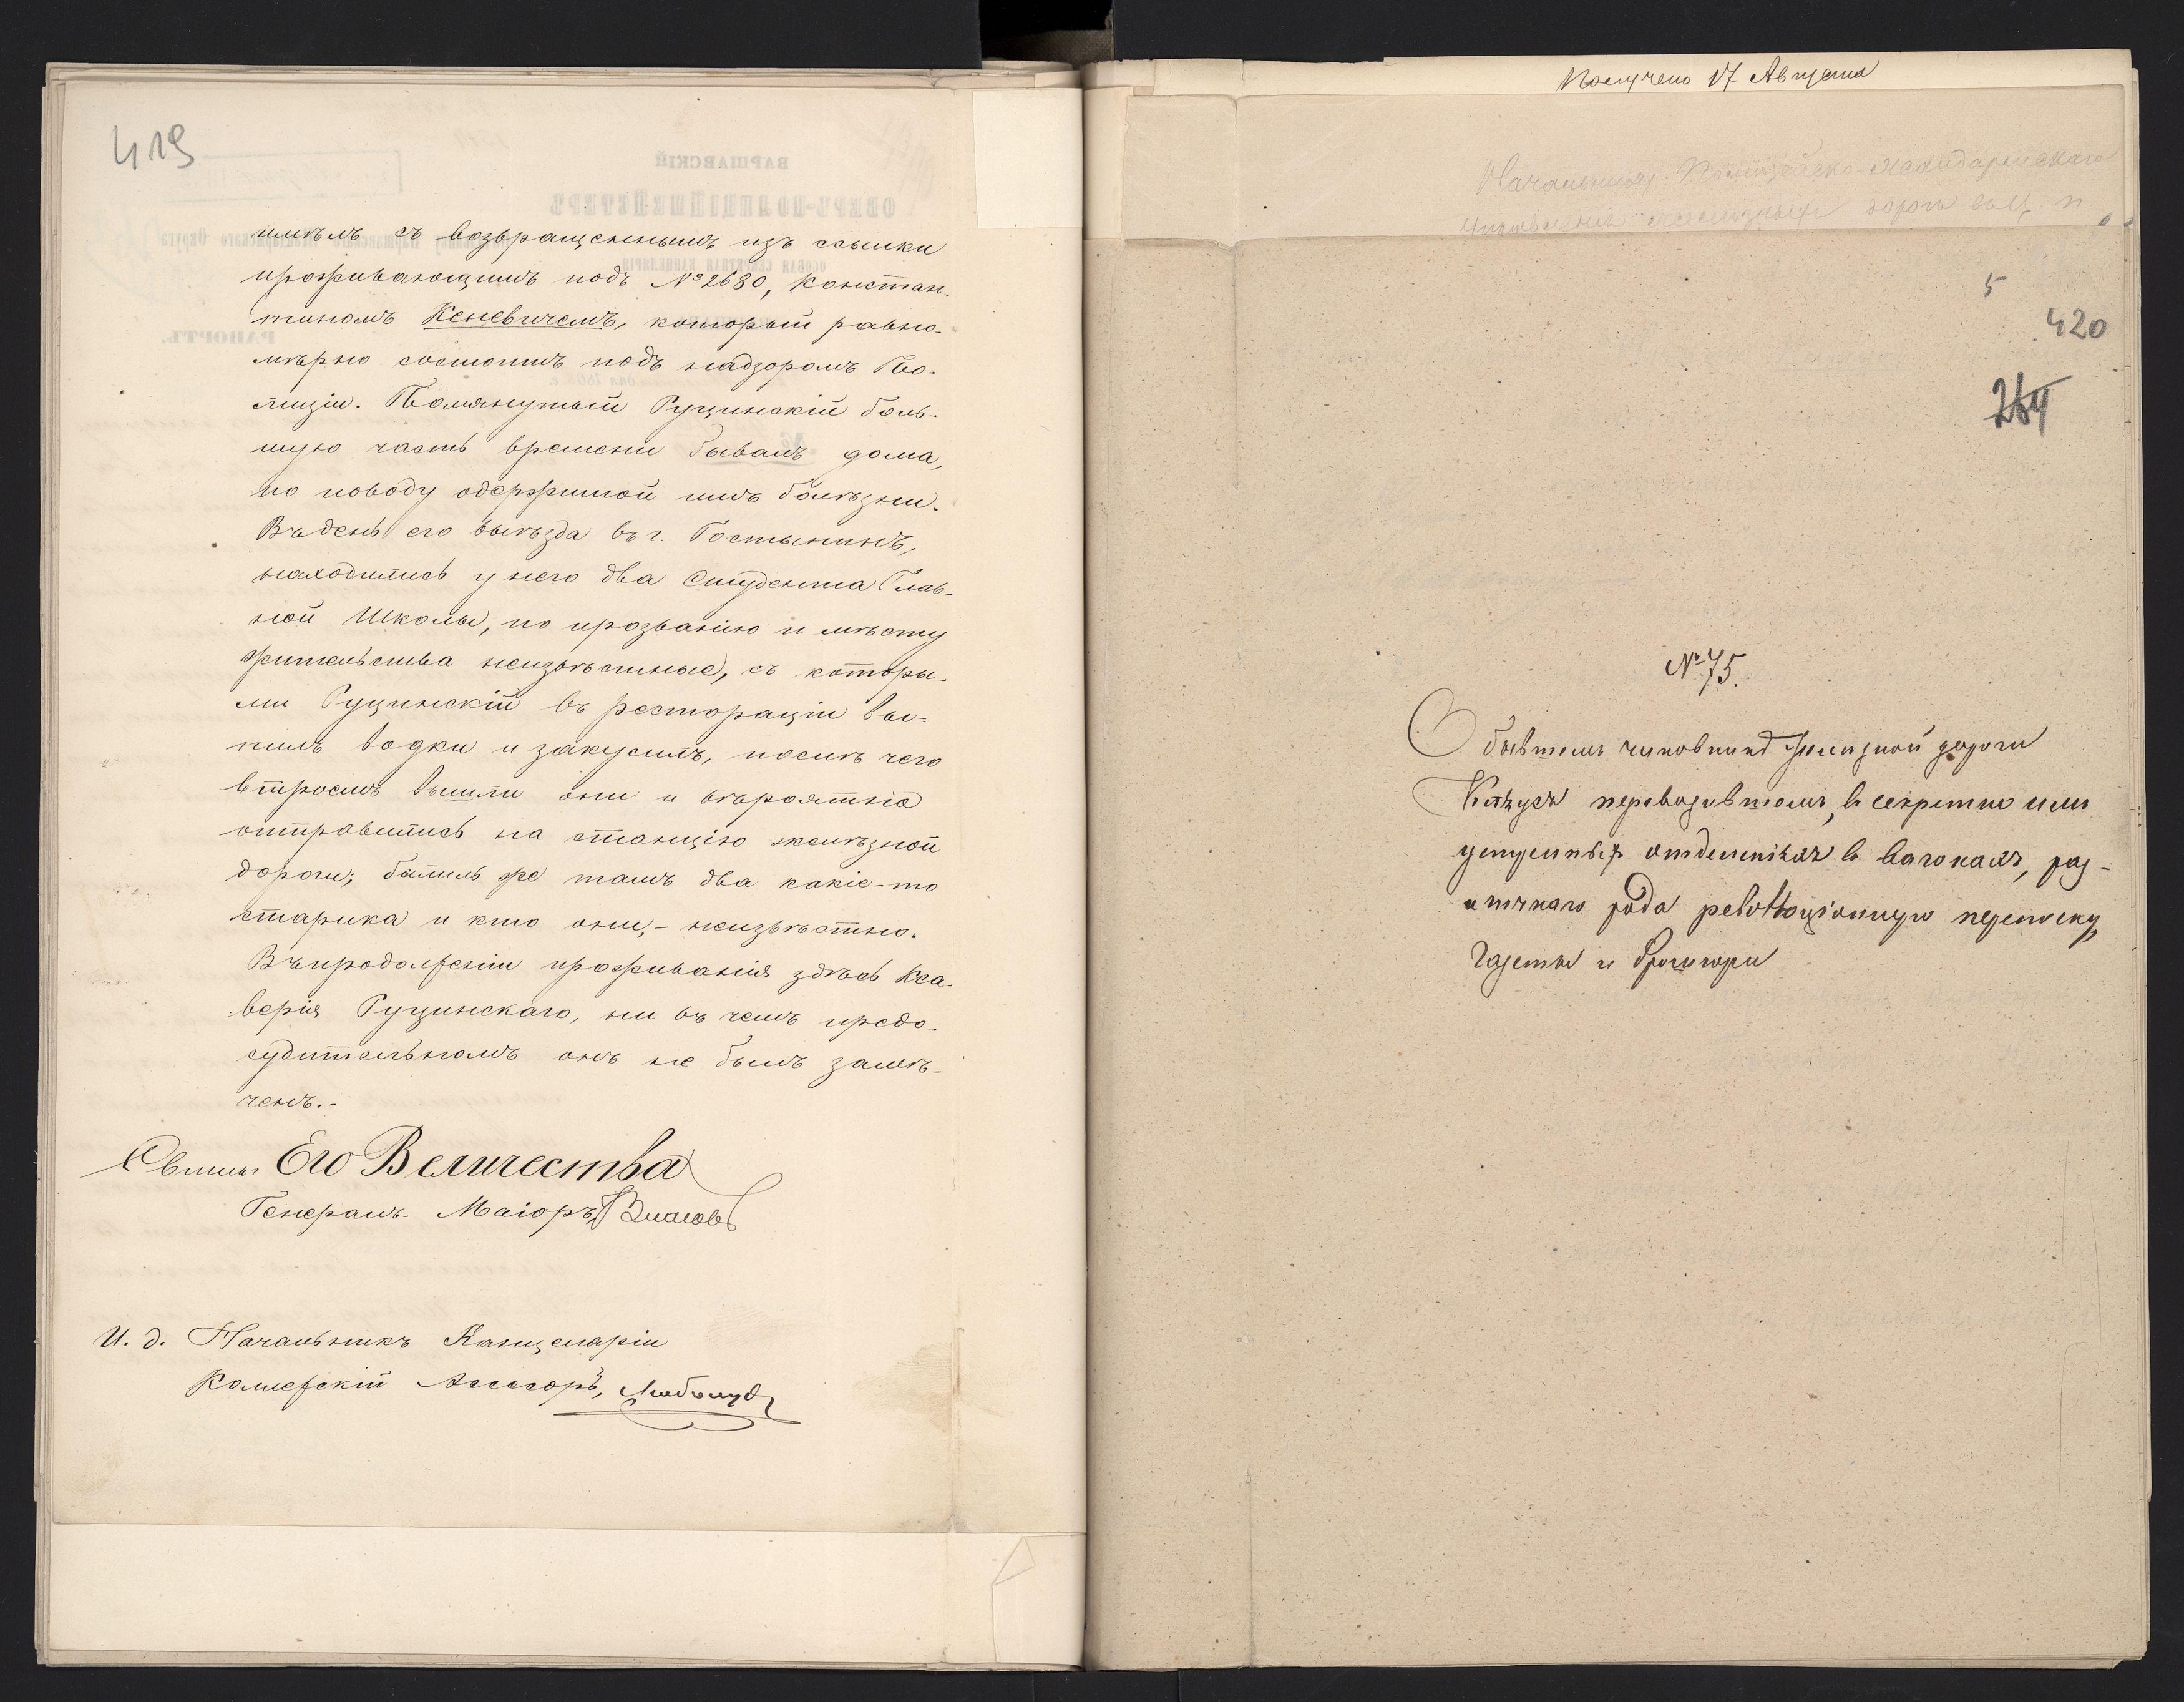 419
имѣлъ съ возвращеннымъ изъ ссылки
проживающимъ подъ № 2680, Констан-
тиномъ Кеневичемъ, который равно-
мѣрно состоитъ подъ надзоромъ По-
лиціи. Помянутый Руцинскій боль-
шую часть времени бывалъ дома,
по поводу одержимой имъ болѣзни.
Въ день его выѣзда въ г. Гостынинъ,
находились у него два Студента Глав-
ной Школы, по прозванію и мѣсту
жительства неизвѣстные, съ которы-
ми Руцинскій въ ресторации вы-
пилъ водки и закусилъ, послѣ чего
втроемъ вышли они и вѣроятно
отправились на станцію желѣзной
дороги; былиль же тамъ два какіе-то
старика и кто они,- неизвѣстно.
Въ продолженіи проживанія здѣсь Кса-
верія Руцинскаго, ни въ чемъ предо-
судительномъ онъ не былъ замѣ-
ченъ.-
Свиты Его Величества
Генералъ-Маіоръ Власовъ
И. д. Начальникъ Канцеляріи
Коллежскій Ассесоръ,
Получено 17 Августа
Начальнику Полицейско-Жандармскаго
5
420
264
№ 75.
О бывшемъ чиновникѣ желѣзной дороги
перевозившемъ, въ секретно имъ
устроенныхъ отдѣленіяхъ въ вагонахъ, раз-
личнаго рода революціонную переписку,
газеты и брошюры